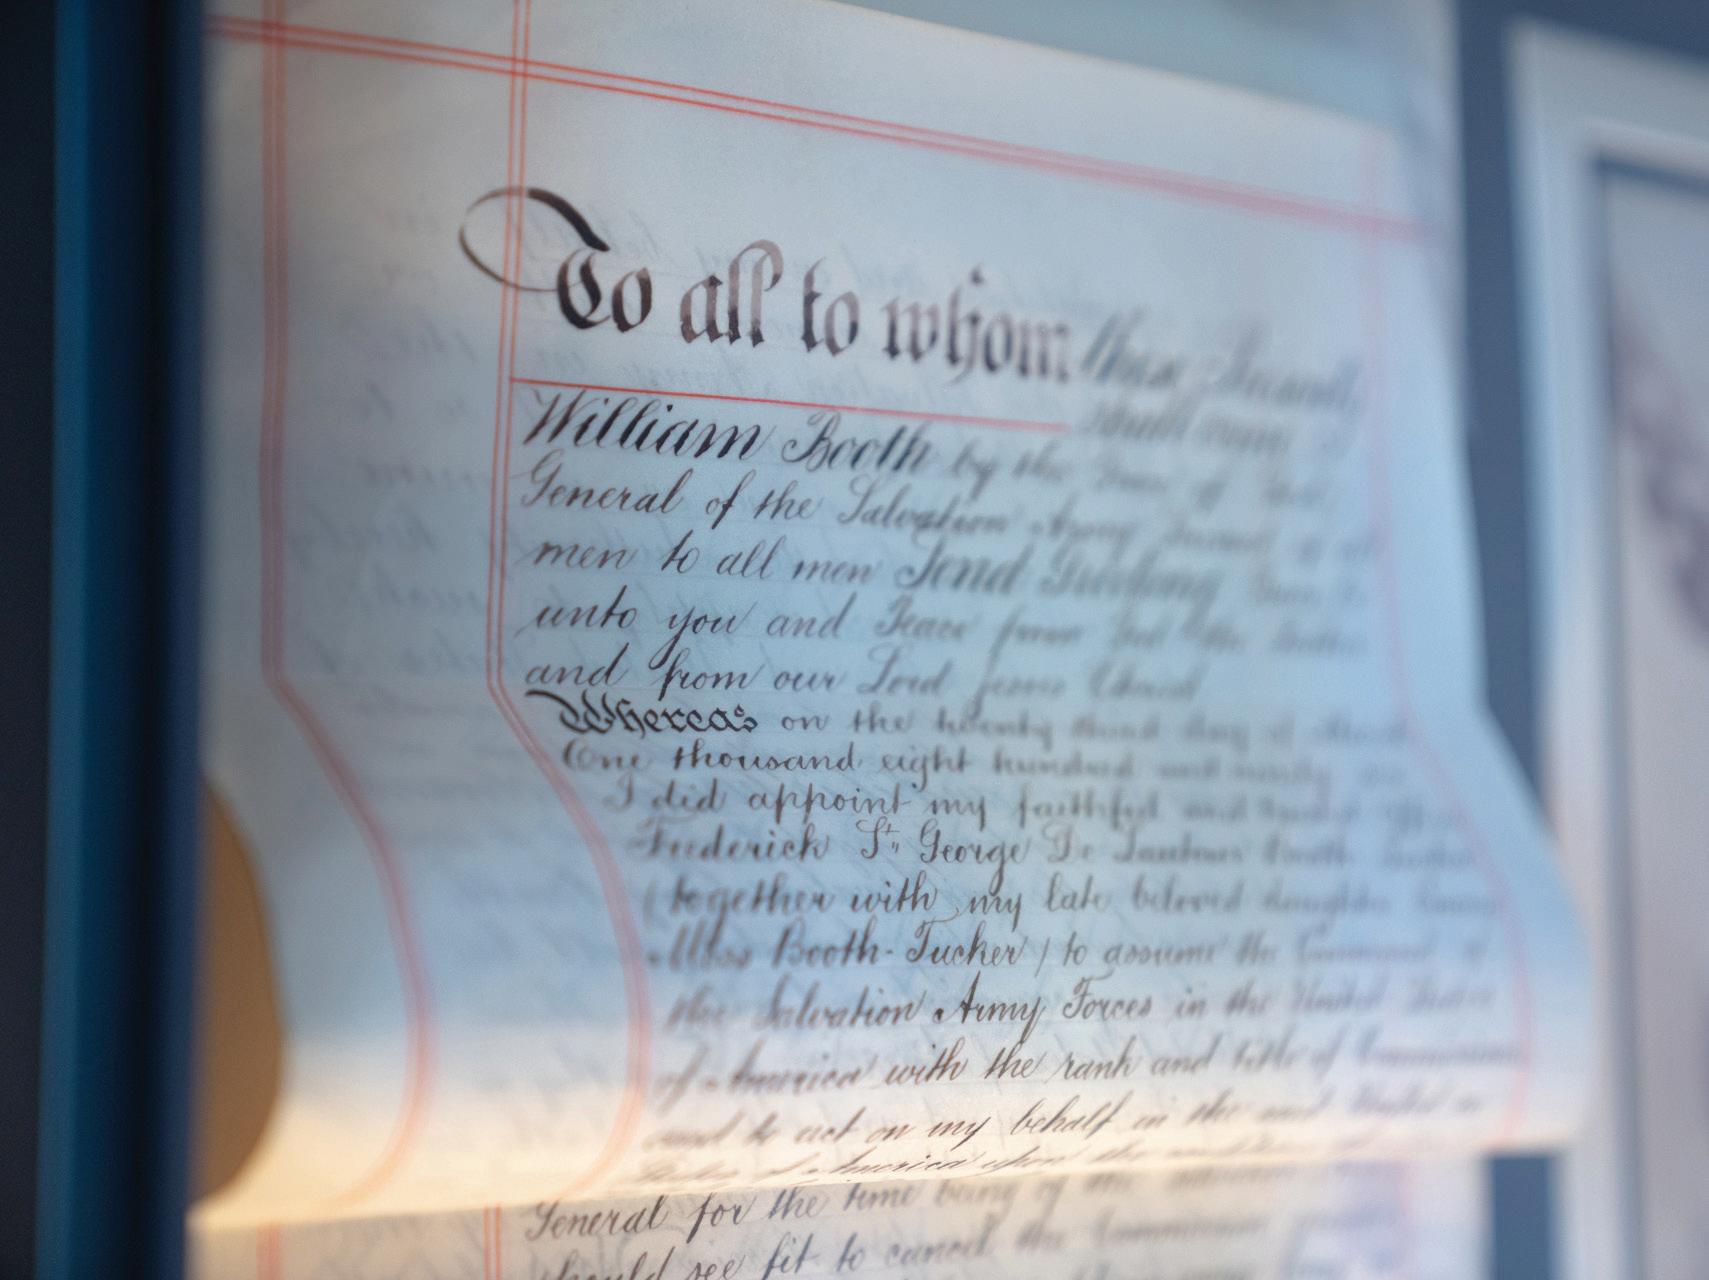 To all to whom these Presents
shall come
William Booth by the Grace of God
General of the Salvation Army
men to all men Send Greeting Grace be
unto you and Peace from God the Father
and from our Lord Jesus Christ
Whereas on the twenty third day of March
One thousand eight hundred and ninety six
I did appoint my faithful and
Frederick St. George De Lautour Booth-Tucker
(together with my late beloved daughter Emma
Moss Booth-Tucker) to assume the Command of
the Salvation Army Forces in the United States
of America with the rank and title of Commissioner
and to act on my behalf in the said United
States of America upon the
General for the time being of the
should see fit to cancel the